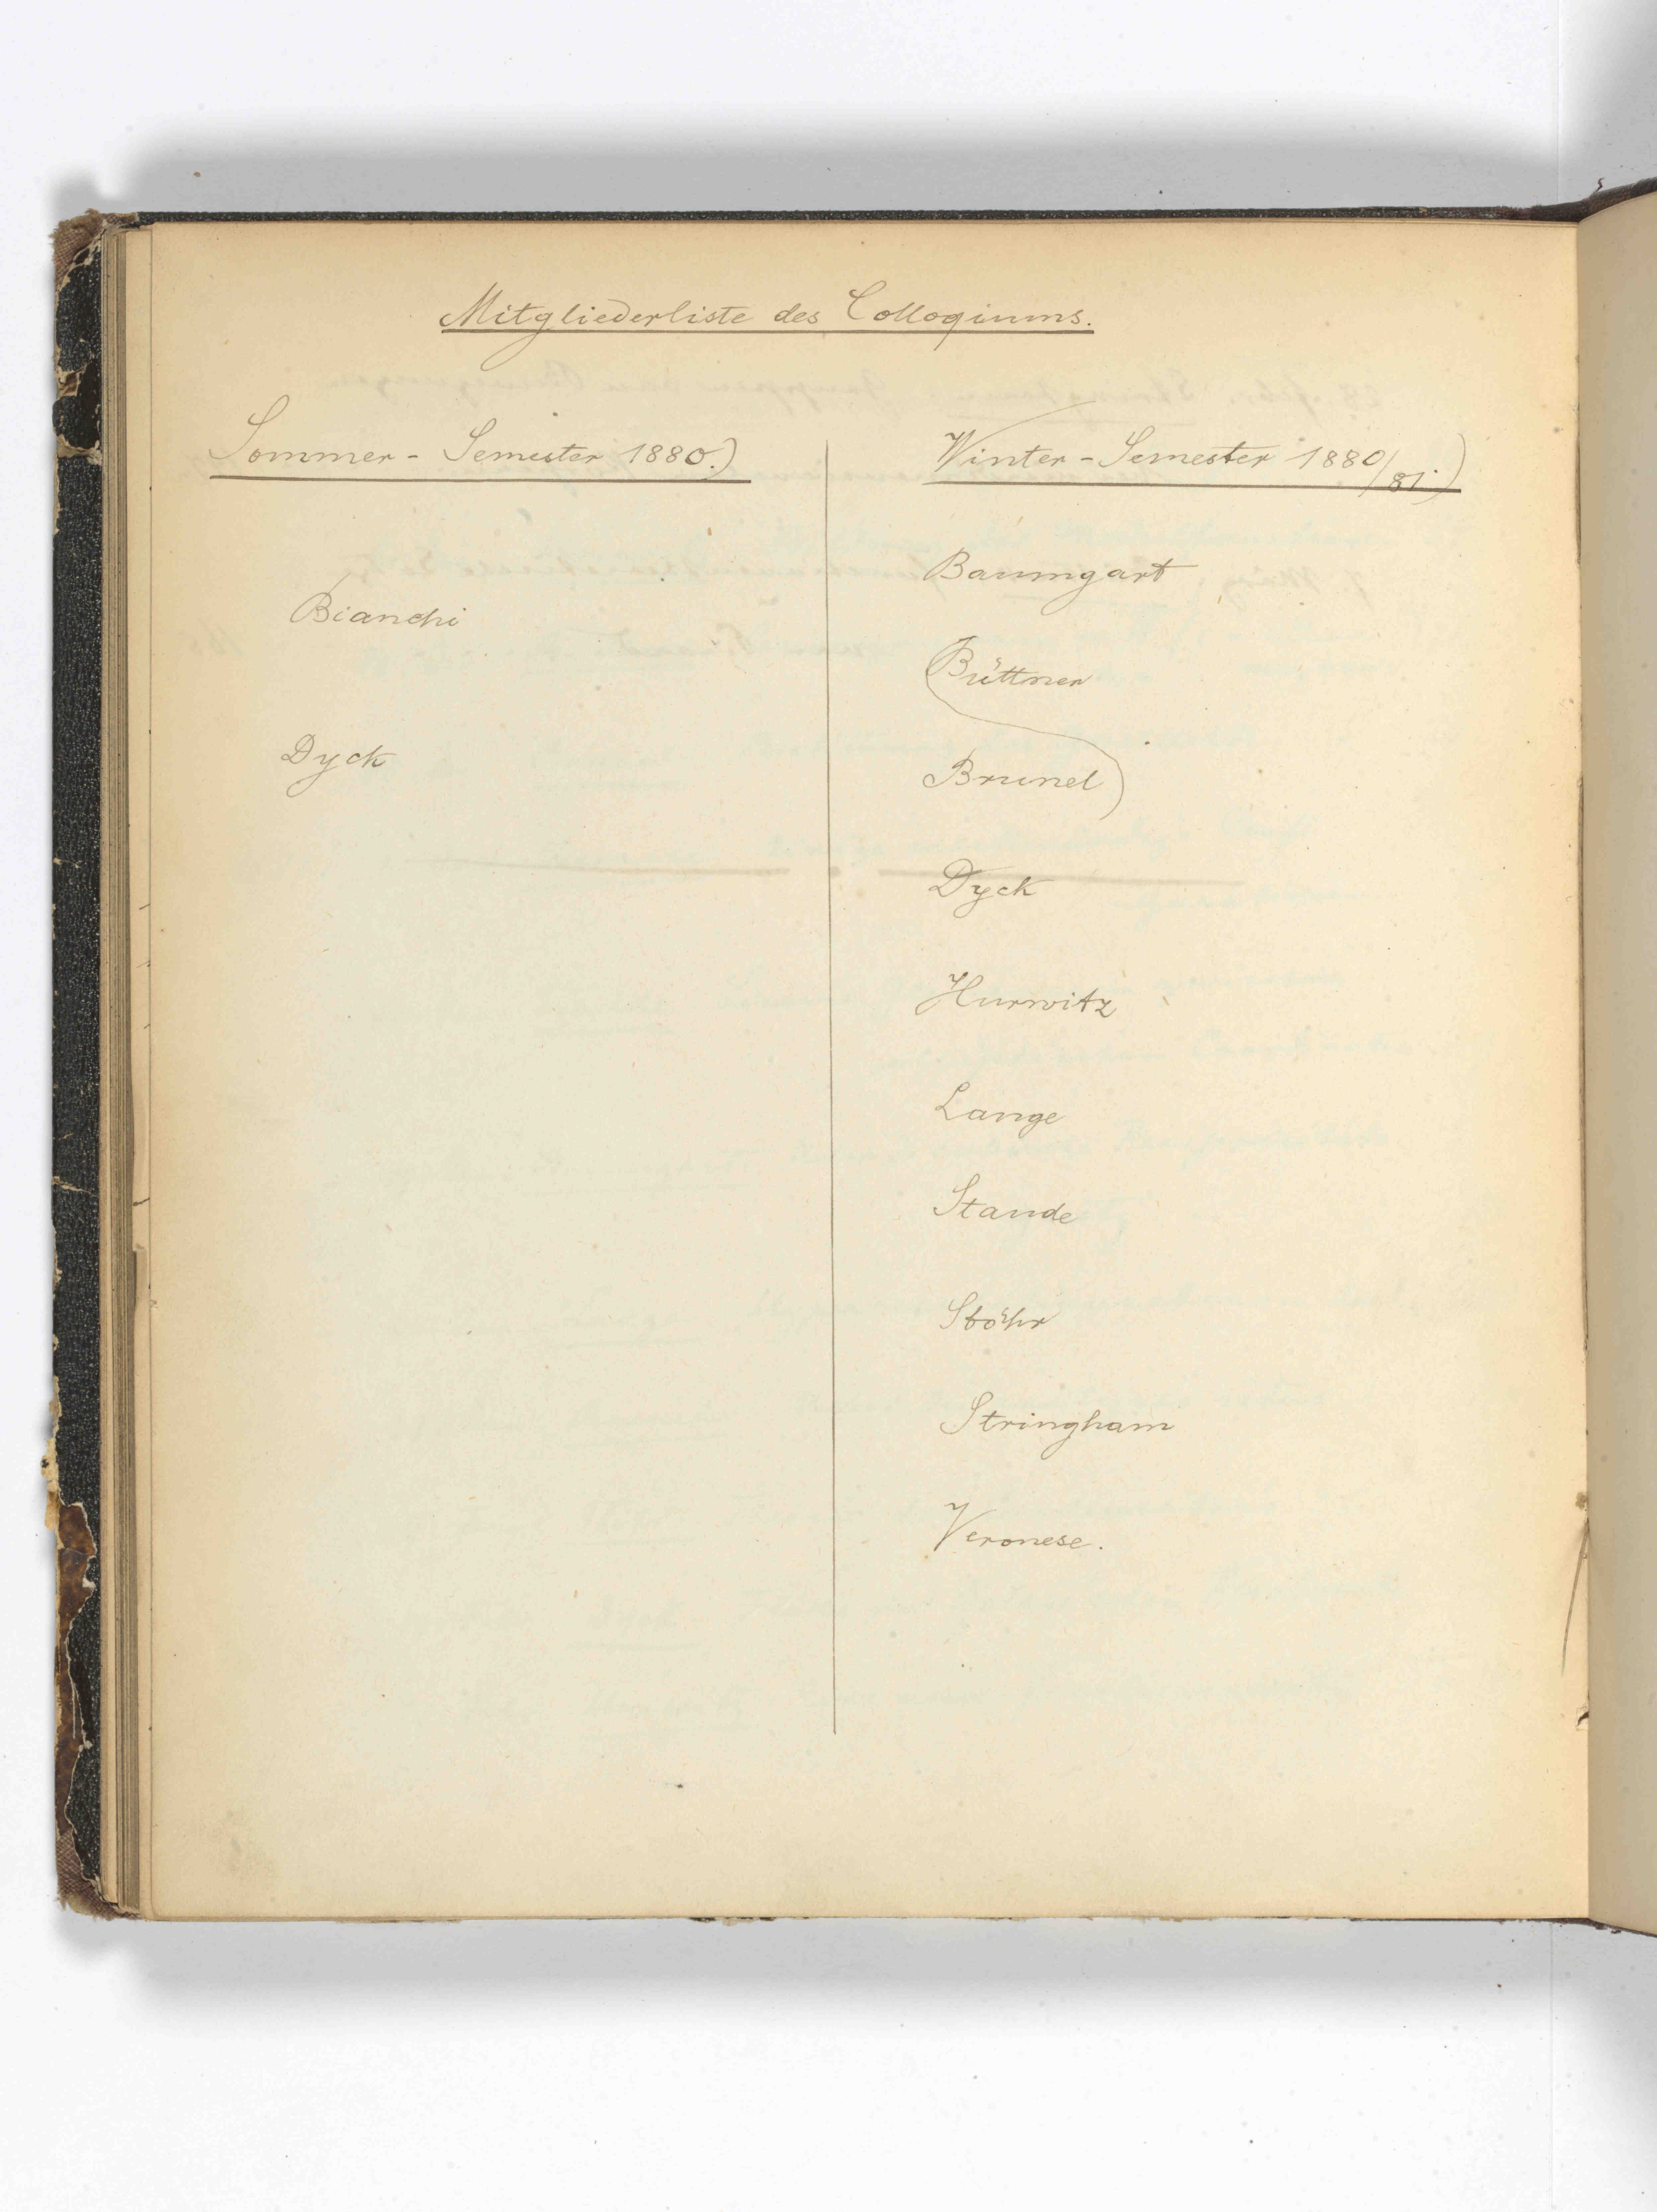 Mitgliederliste des Colloqiums.
Sommer - Semester 1880.)
Bianchi
Dyck
Winter - Semester 1880/81.)
Baumgart
Büttner
Brunel
Dyck
Hurwitz
Lange
Staude
Stöhr
Stringham
Veronese.